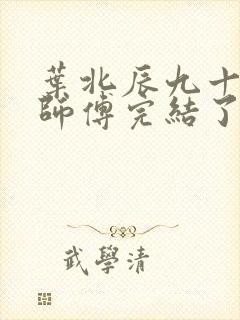 葉北辰九十
師傅完結了
武學清